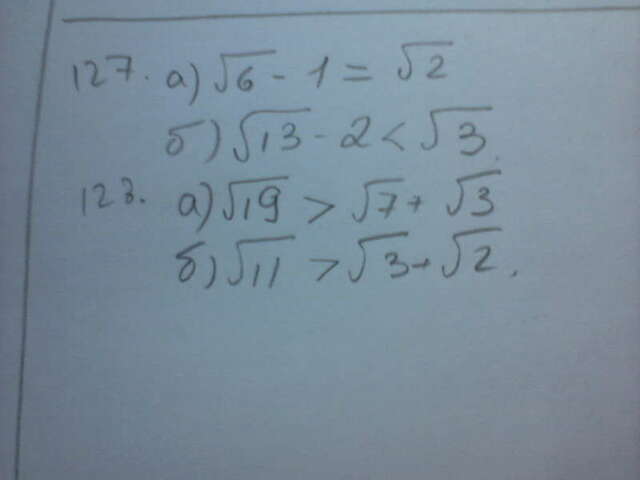 127. а) √6 - 1 = √2
б) √13 - 2 < √3.
128. а) √19 > √7 + √3
б) √11 > √3 + √2.